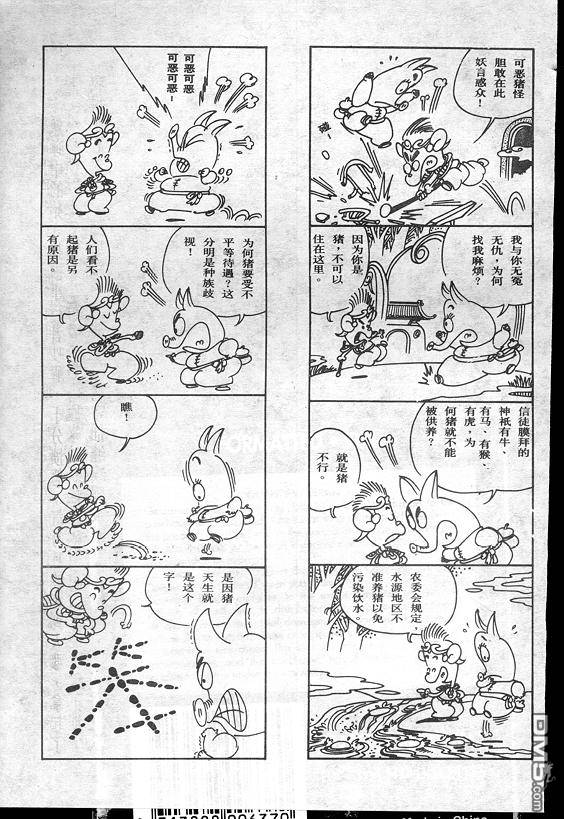 可恶猪怪
胆敢在此
妖言惑众！
碰！
我与你无冤
无仇，为何
找我麻烦？
因为你是
猪，不可以
住在这里。
信徒膜拜的
神祇有牛、
有马、有猴、
有虎，为
何猪就不能
被供养？
就是猪
不行。
农委会规定，
水源地区不
准养猪以免
污染饮水。
可恶可恶
可恶可恶！
为何猪要受不
平等待遇？这
分明是种族歧
视！
人们看不
起猪是另
有原因。
瞧！
是因猪
天生就
是这个
字！
DM5.com